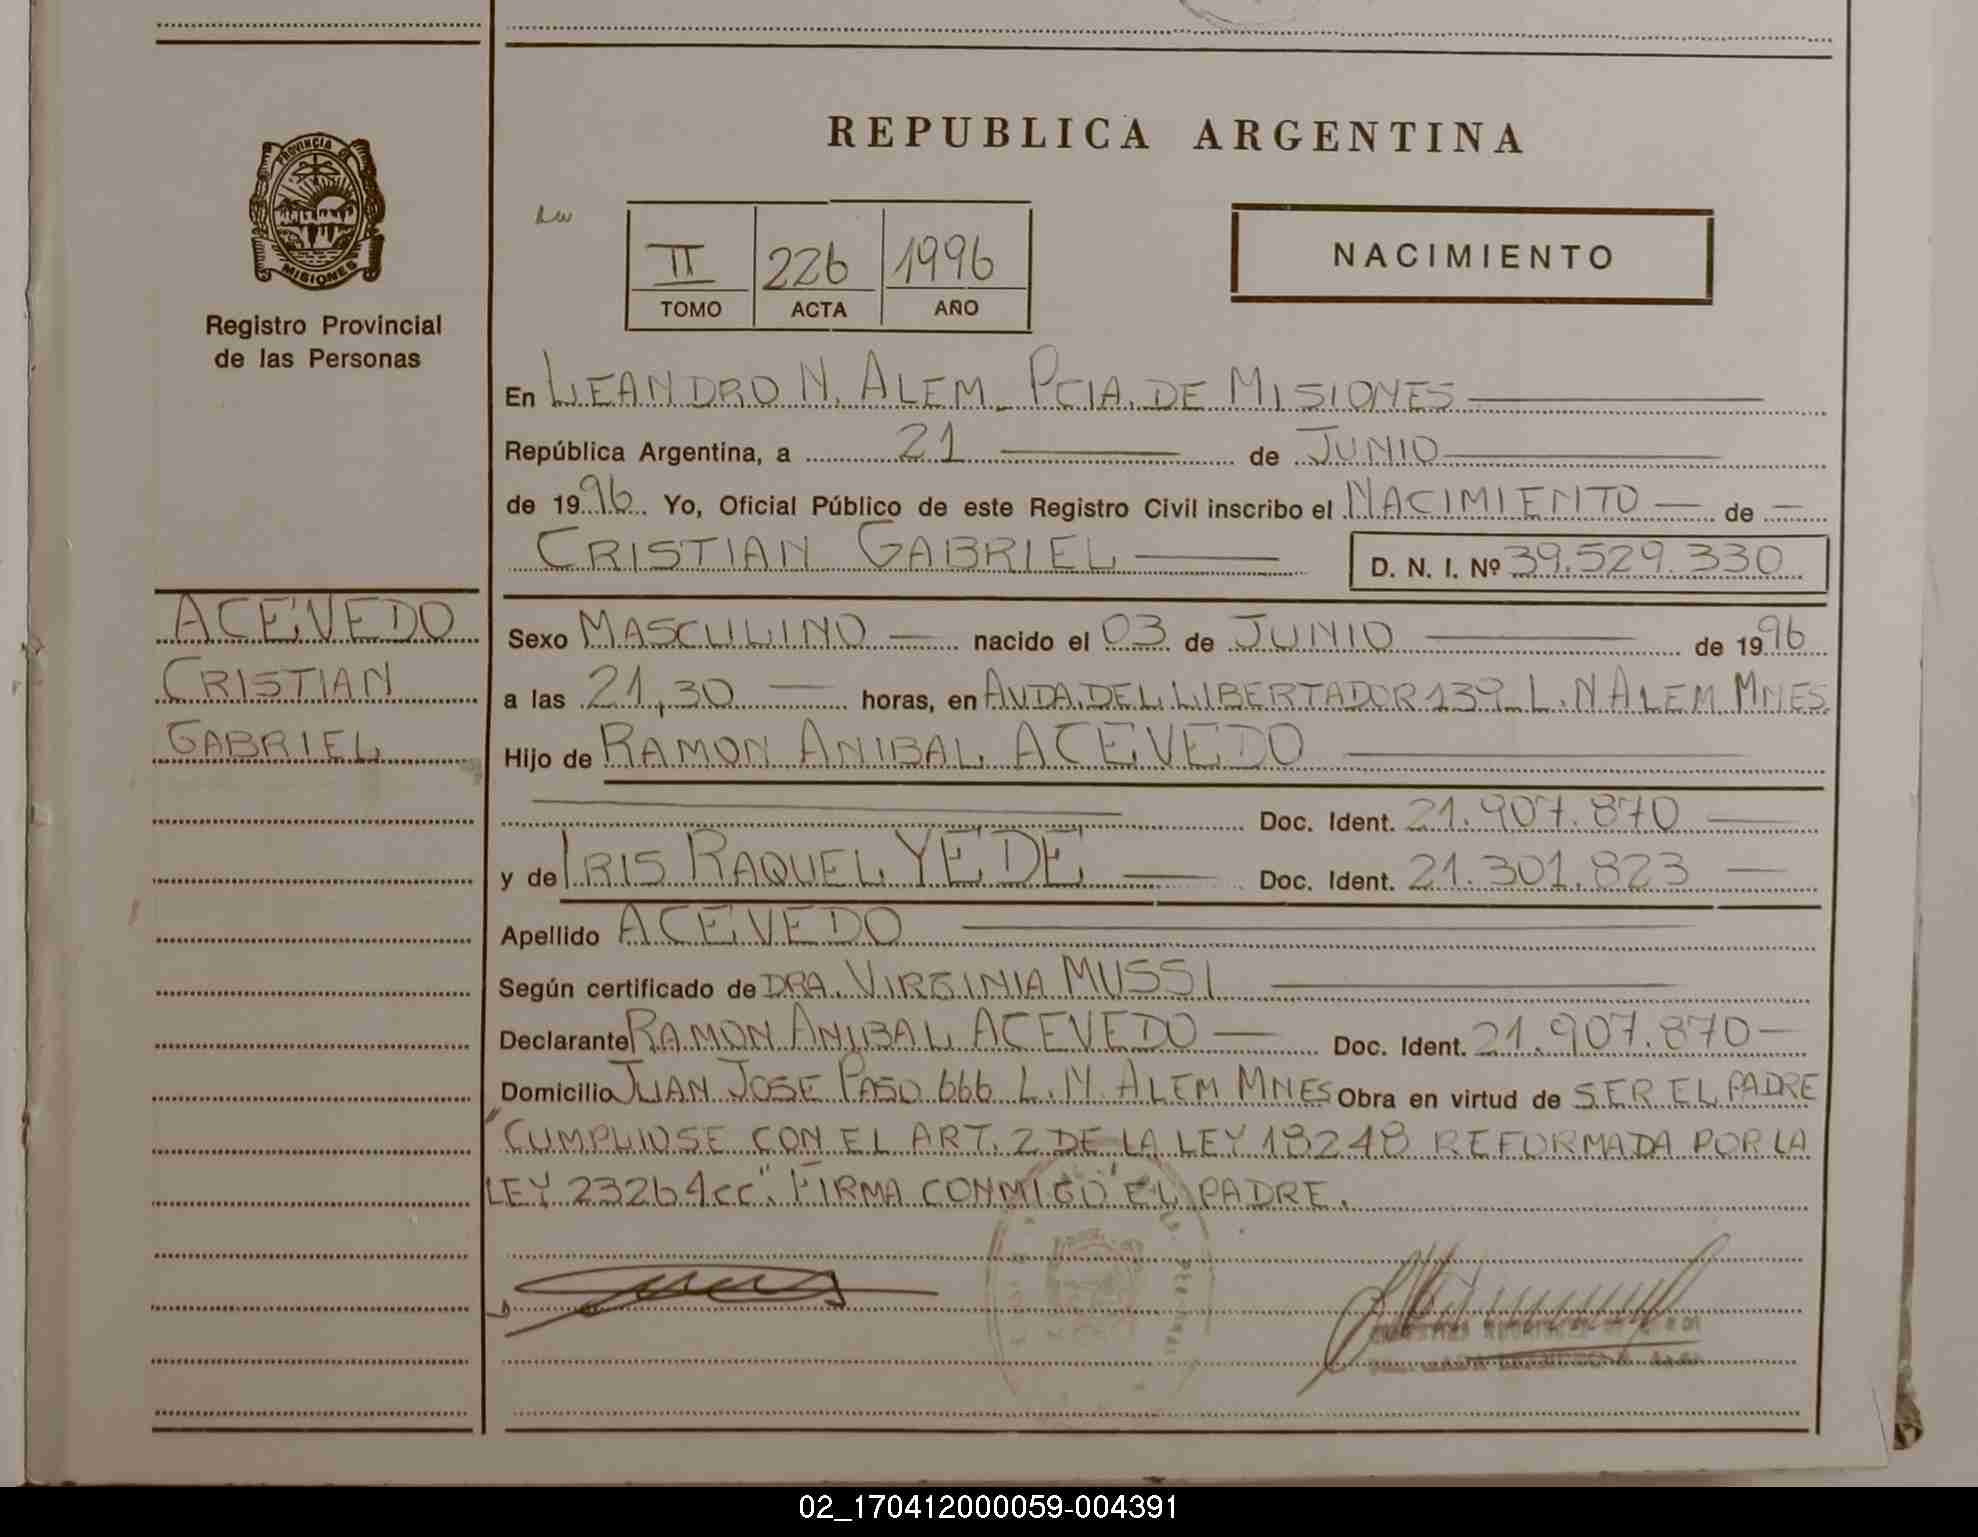 REPUBLICA ARGENTINA
PROVINCIA DE MISIONES
II 226 1996
TOMO ACTA AÑO
NACIMIENTO
Registro Provincial
de las Personas
En LEANDRO N. ALEM. PCIA. DE MISIONES
República Argentina, a 21 de JUNIO
de 1996. Yo, Oficial Público de este Registro Civil inscribo el NACIMIENTO de
CRISTIAN GABRIEL D. N. I. Nº 39.529.330
ACEVEDO
CRISTIAN
GABRIEL
Sexo MASCULINO nacido el 03 de JUNIO de 1996
a las 21,30 horas, en AVDA. DEL LIBERTADOR 139 L. N ALEM MNES.
Hijo de RAMON ANIBAL ACEVEDO
Doc. Ident. 21.907.870
y de IRIS RAQUEL YEDE Doc. Ident. 21.301.823
Apellido ACEVEDO
Según certificado de DRA. VIRGINIA MUSSI
Declarante RAMON ANIBAL ACEVEDO Doc. Ident. 21.907.870
Domicilio JUAN JOSE PASO 666 L. N. ALEM MNES Obra en virtud de SER EL PADRE
"CUMPLIOSE CON EL ART. 2 DE LA LEY 18248 REFORMADA POR LA
LEY 23264 cc". FIRMA CONMIGO EL PADRE.
02_170412000059-004391